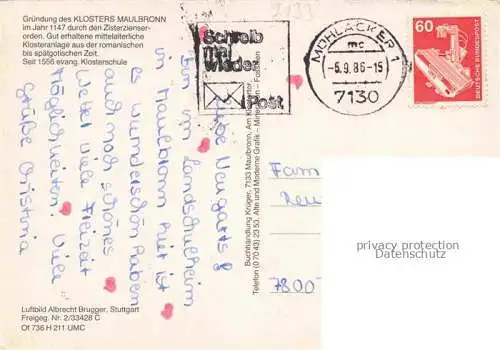 Gründung des KLOSTERS MAULBRONN
im Jahr 1147 durch den Zisterzienser-
orden. Gut erhaltene mittelalterliche
Klosteranlage aus der romanischen
bis spätgotischen Zeit.
Seit 1556 evang. Klosterschule
7133
Schreib
mal
wieder
Post
MÜHLACKER 1
mc
-6.9.86-15
7130
60
DEUTSCHE BUNDESPOST
Liebe Neugarts!
im Landschulheim
in Maulbronn ist
es wunderschön. Haben
auch noch schönes
Wetter viele Freizeit
möglichkeiten. Viele
Grüße Christina
Buchhandlung Krüger, 7133 Maulbronn, Am Klostertor
Telefon (0 70 43) 23 53. Alte und Moderne Grafik – Mineralien – Fossilien
Fam
Neu
7800
privacy protection
Datenschutz
Luftbild Albrecht Brugger, Stuttgart
Freigeg. Nr. 2/33428 C
Of 736 H 211 UMC